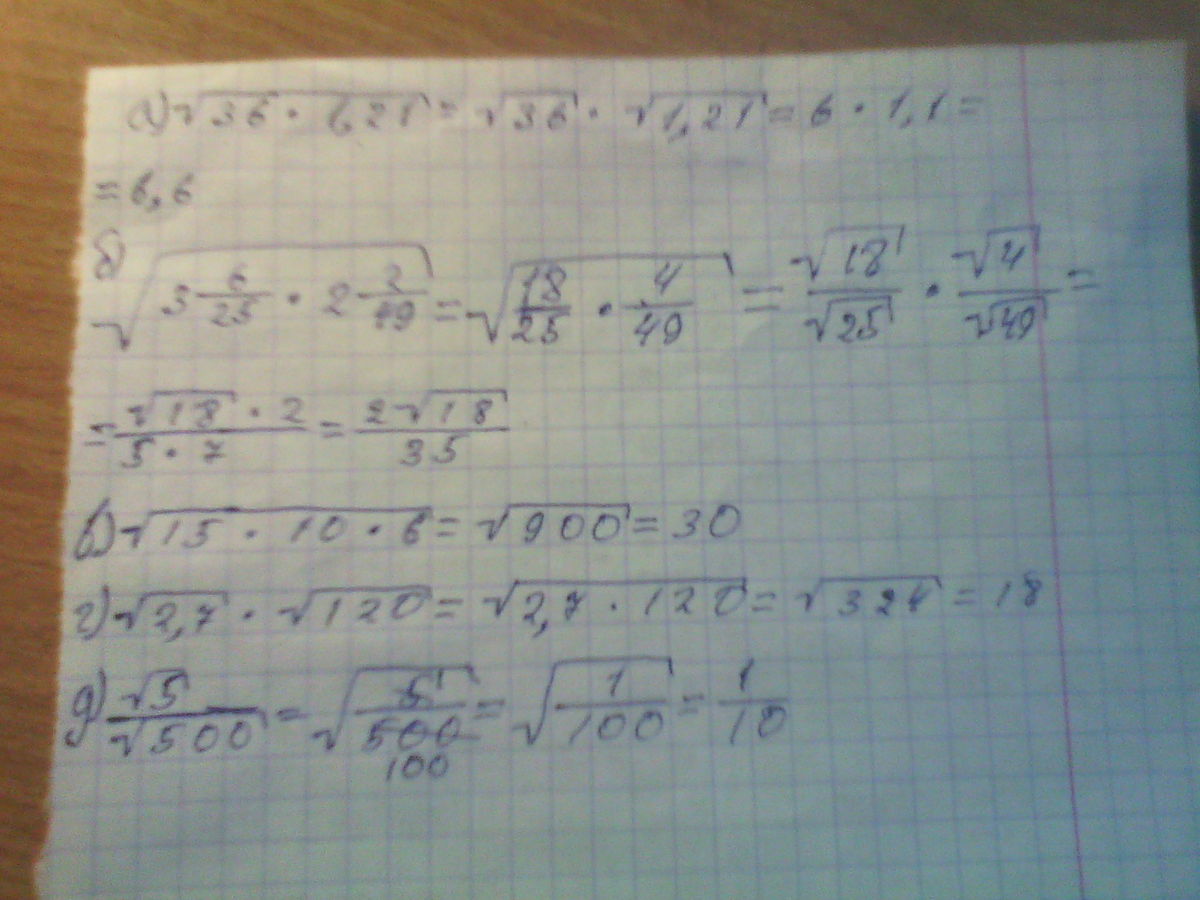 а) √36 · 1,21 = √36 · √1,21 = 6 · 1,1 =
= 6,6
б) √3 6/25 · 2 2/49 = √18/25 · 4/49 = √18/√25 · √4/√49 =
= √18 · 2/5 · 7 = 2√18/35
в) √15 · 10 · 6 = √900 = 30
г) √2,7 · √120 = √2,7 · 120 = √324 = 18
д) √5/√500 = √5 1/500 100 = √1/100 = 1/10